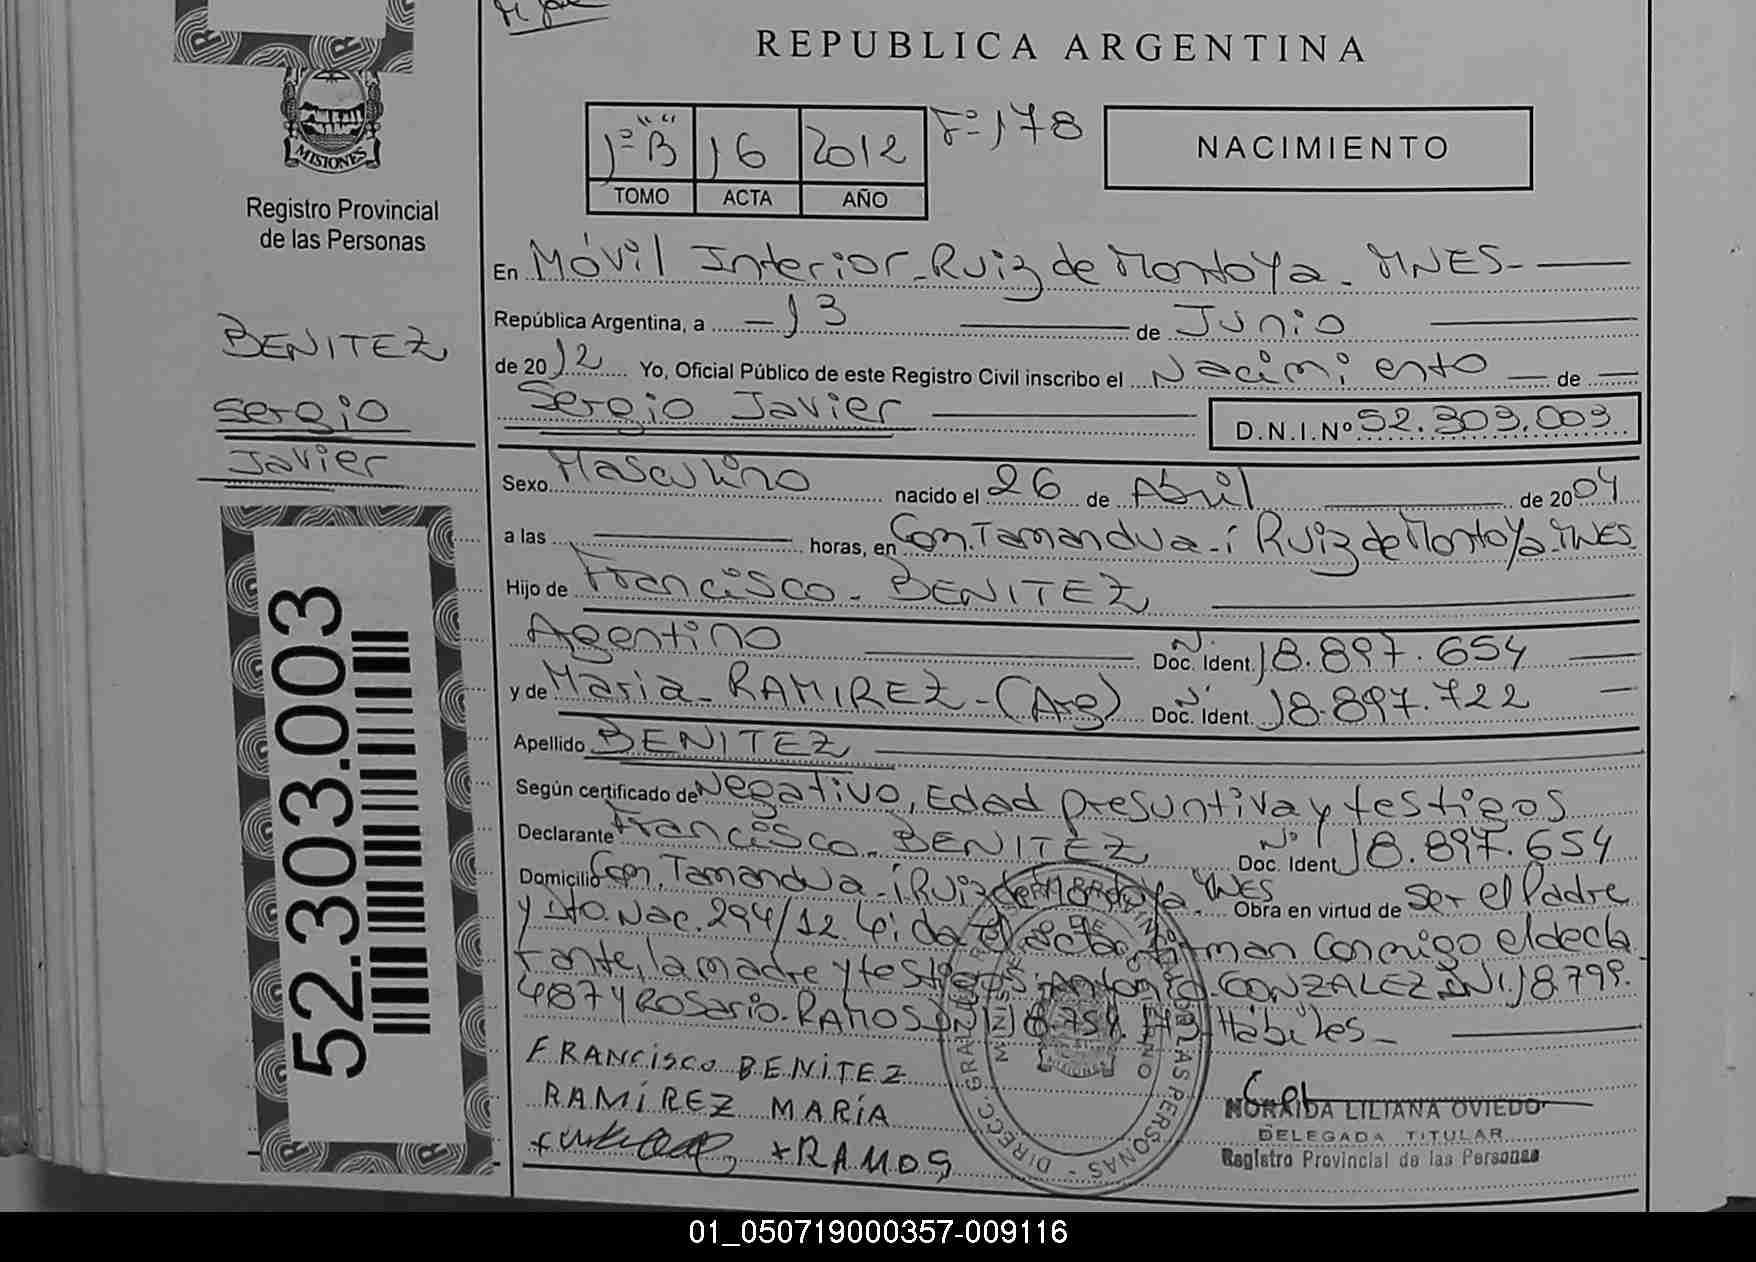 REPUBLICA ARGENTINA
MISIONES
Registro Provincial
de las Personas
1º "B" 16 2012 Fº 178
TOMO ACTA AÑO
NACIMIENTO
En Móvil Interior - Ruiz de Montoya - MNES -
República Argentina, a - 13 de Junio
de 2012 Yo, Oficial Público de este Registro Civil inscribo el Nacimiento de
Sergio Javier
D.N.I.Nº 52.303.003
BENITEZ
Sergio
Javier
Sexo Masculino nacido el 26 de Abril de 2004
a las horas, en Com. Tamandua - i Ruiz de Montoya - MNES
Hijo de Francisco - BENITEZ
Agentino Doc. Ident. Nº 18.897.654
y de Maria - RAMIREZ - (Arg) Doc. Ident. Nº 18.897.722
Apellido BENITEZ
Según certificado de Negativo, Edad presuntiva y testigos
Declarante Francisco - BENITEZ Doc. Ident Nº 18.897.654
Domicilio Com. Tamandua - i Ruiz de Montoya MNES Obra en virtud de ser el Padre
y Dto. Nac. 294/12 Leida el acta firman conmigo el decla
rante, la madre y testigos: Antonio GONZALEZ DNI. 18.799.
487 y Rosario - RAMOS DNI Hábiles -
FRANCISCO BENITEZ
RAMÍREZ MARÍA
RAMOS
NORAIDA LILIANA OVIEDO
DELEGADA TITULAR
Registro Provincial de las Personas
52.303.003
01_050719000357-009116